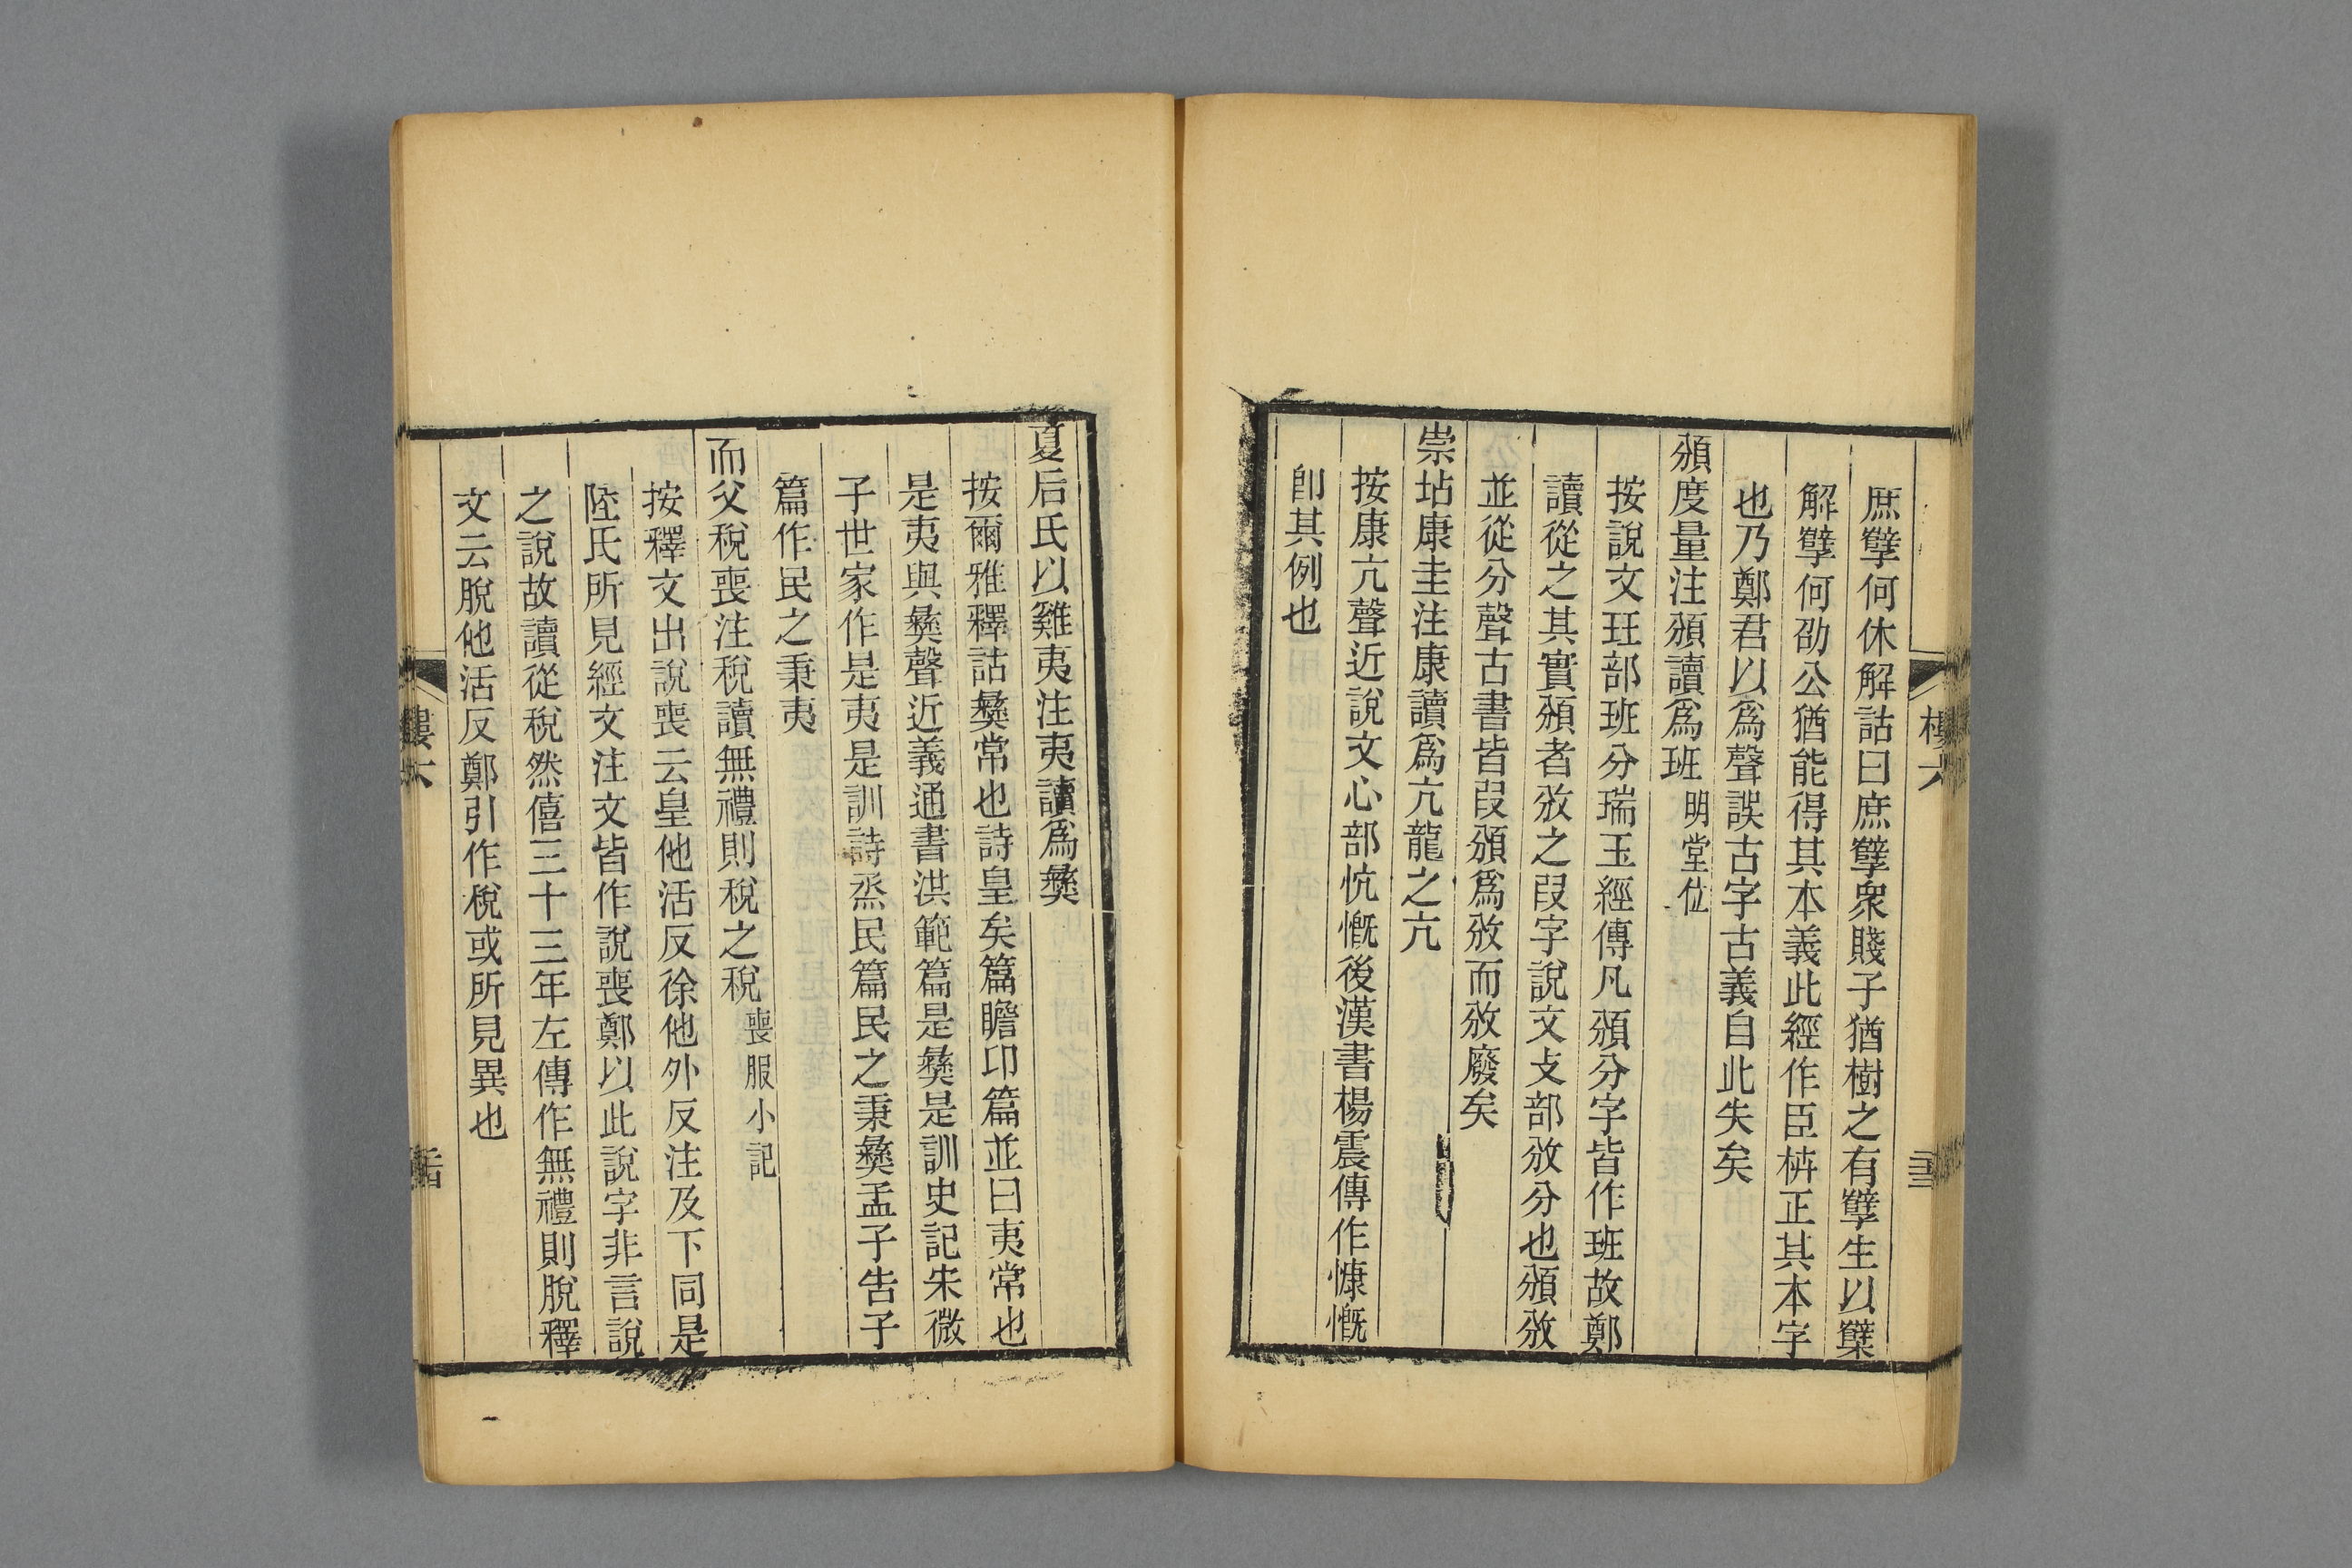 庶孽何休解詁曰庶孽衆賤子猶樹之有孽生以櫱
解孽何劭公猶能得其本義此經作臣枿正其本字
也乃鄭君以爲聲誤古字古義自此失矣
頒度量注頒讀爲班明堂位
按說文玨部班分瑞玉經傳凡頒分字皆作班故鄭
讀從之其實頒者攽之叚字說文攴部攽分也頒攽
並從分聲古書皆叚頒爲攽而攽廢矣
崇坫康圭注康讀爲亢龍之亢
按康亢聲近說文心部忼慨後漢書楊震傳作慷慨
卽其例也
夏后氏以雞夷注夷讀爲彝
按爾雅釋詁彝常也詩皇矣篇瞻卬篇並曰夷常也
是夷與彝聲近義通書洪範篇是彝是訓史記宋微
子世家作是夷是訓詩烝民篇民之秉彝孟子告子
篇作民之秉夷
而父稅喪注稅讀無禮則稅之稅喪服小記
按釋文出說喪云皇他活反徐他外反注及下同是
陸氏所見經文注文皆作說喪鄭以此說字非言說
之說故讀從稅然僖三十三年左傳作無禮則脫釋
文云脫他活反鄭引作稅或所見異也